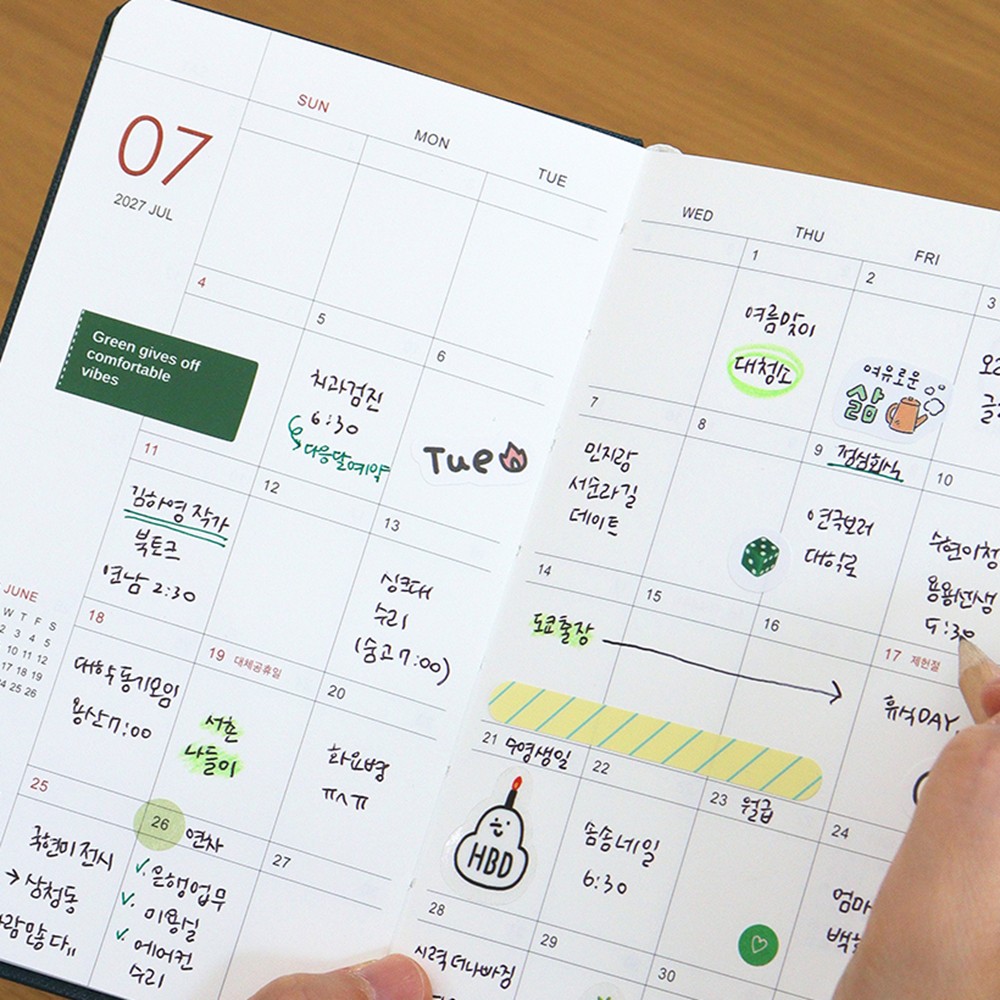 07
2027 JUL
SUN
MON
TUE
WED
THU
FRI
1
2
3
여름맞이
대청소
여유로운
삶
4
5
6
Green gives off
comfortable
vibes
치과검진
6:30
다음달예약
Tue
7
8
9
점심회식
10
민지랑
서순라길
데이트
연극보러
대학로
수현이청
용용선생
11
12
13
김하영 작가
북토크
연남 2:30
싱크대
수리
(숨고 7:00)
14
15
16
17 제헌절
도쿄출장
휴식DAY
JUNE
W T F S
2 3 4 5
10 11 12
17 18 19
24 25 26
18
19 대체공휴일
20
대학동기모임
용산 7:00
서촌
나들이
화요병
ㅠㅅㅠ
21
22
23 월급
24
HBD
솜솜네일
6:30
엄마
25
26 연차
27
국현미 전시
→ 삼청동
사람많다
은행업무
미용실
에어컨
수리
28
29
30
시력 더나빠짐